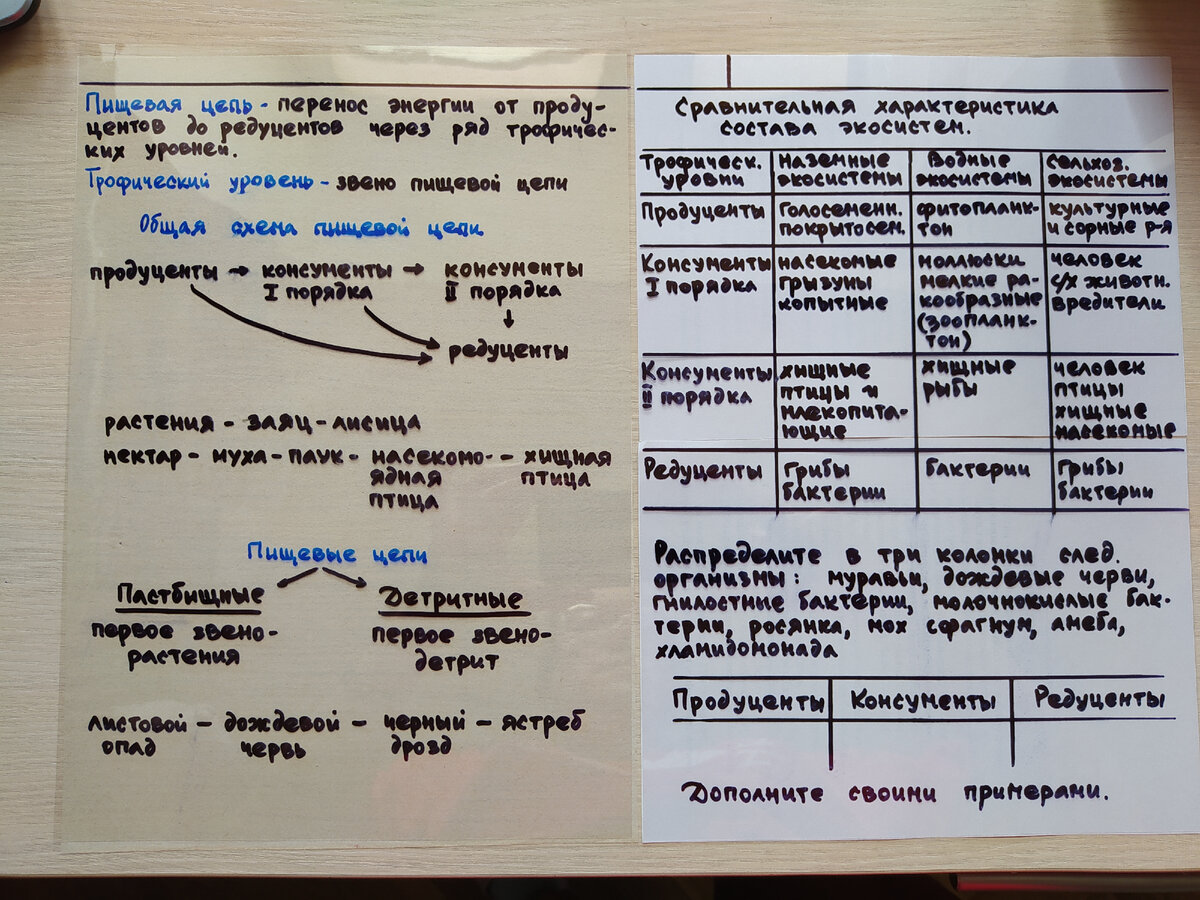 Пищевая цепь - перенос энергии от проду-
центов до редуцентов через ряд трофичес-
ких уровней.
Трофический уровень - звено пищевой цепи
Общая схема пищевой цепи
продуценты → консументы → консументы
I порядка II порядка
редуценты
растения - заяц - лисица
нектар - муха - паук - насекомо- - хищная
ядная птица
птица
Пищевые цепи
Пастбищные Детритные
первое звено- первое звено-
растения детрит
листовой - дождевой - черный - ястреб
опад червь дрозд
Сравнительная характеристика
состава экосистем.
Трофическ. Наземные Водные Сельхоз.
уровни экосистемы экосистемы экосистемы
Продуценты Голосеменн. фитопланк- культурные
покрытосем. тон и сорные р-я
Консументы насекомые моллюски человек
I порядка грызуны мелкие ра- с/х животн.
копытные кообразные вредители
(зоопланк-
тон)
Консументы хищные хищные человек
II порядка птицы и рыбы птицы
млекопита- хищные
ющие насекомые
Редуценты грибы бактерии грибы
бактерии бактерии
Распределите в три колонки след.
организмы: муравьи, дождевые черви,
гнилостные бактерии, молочнокислые бак-
терии, росянка, мох сфагнум, амеба,
хламидомонада
Продуценты Консументы Редуценты
Дополните своими примерами.